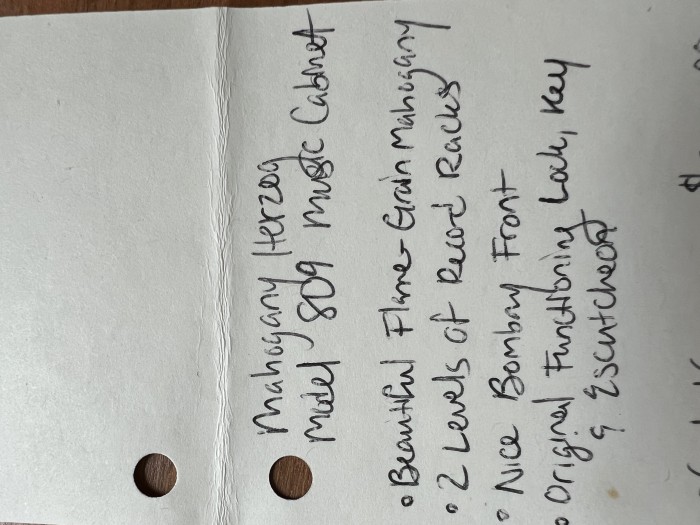 Mahogany Herzog
Model 809 Music Cabinet
• Beautiful Flame-Grain Mahogany
• 2 Levels of Record Racks
• Nice Bombay Front
• Original Functioning Lock, Key
& Escutcheon
$